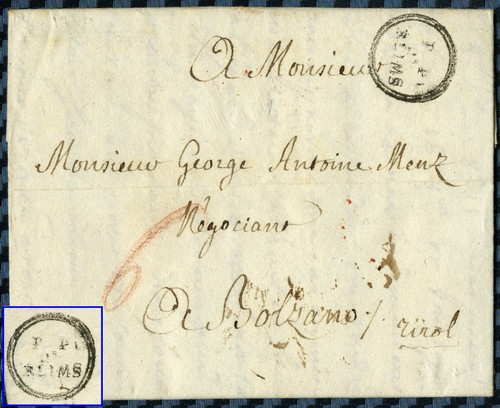 A Monsieur
P. P.
REIMS
Monsieur George Antoine Menz
Négociant
6
A Bolzano /
Tirol
P. P.
REIMS